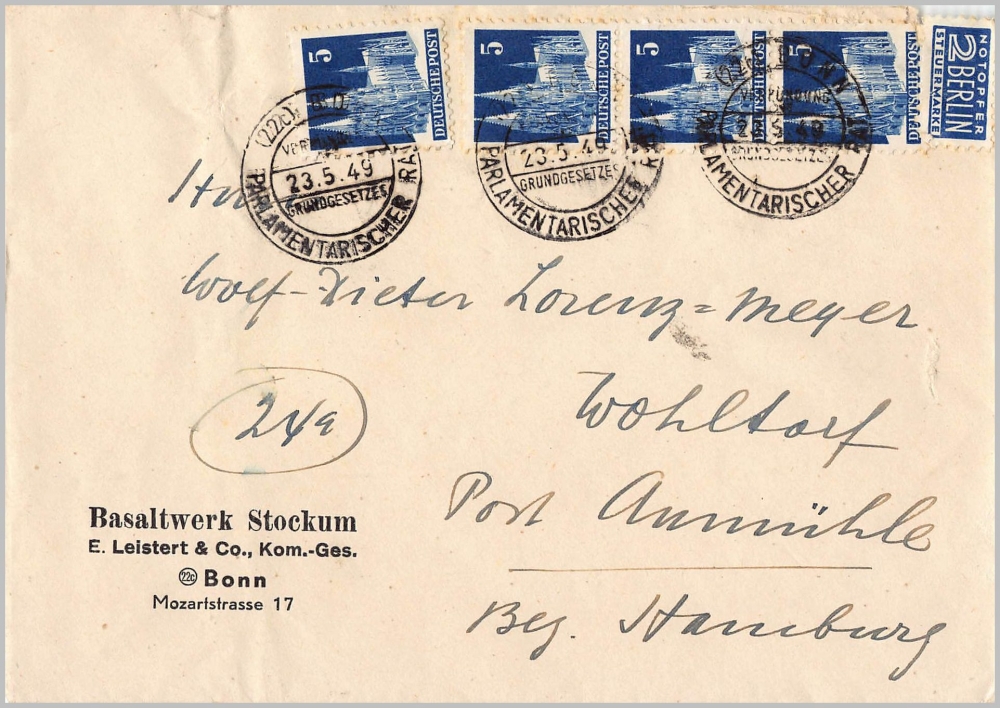 5 DEUTSCHE POST
5
5
5
NOTOPFER
2 BERLIN
STEUERMARKE
(22c)
23.5.49
GRUNDGESETZES
PARLAMENTARISCHER RAT
23.5.49
GRUNDGESETZES
PARLAMENTARISCHER RAT
(22c) BONN
VERKÜNDUNG
23.5.49
GRUNDGESETZES
PARLAMENTARISCHER RAT
Wolf-Dieter Lorenz=Meyer
Wohltorf
24a
Post Aumühle
Bez. Hamburg
Basaltwerk Stockum
E. Leistert & Co., Kom.-Ges.
22c Bonn
Mozartstrasse 17